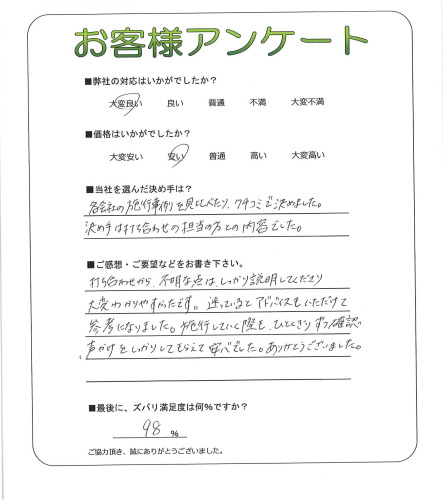 お客様アンケート
■弊社の対応はいかがでしたか？
大変良い 良い 普通 不満 大変不満
■価格はいかがでしたか？
大変安い 安い 普通 高い 大変高い
■当社を選んだ決め手は？
各会社の施行事例を見比べたり、クチコミで決めました。
決め手は打ち合わせの担当の方との内容でした。
■ご感想・ご要望などをお書き下さい。
打ち合わせから、不明な点はしっかり説明してくださり
大変わかりやすかったです。迷っているとアドバイスもいただけて
参考になりました。施行していく際も、ひとくぎりずつ確認、
声かけをしっかりしてもらえて安心でした。ありがとうございました。
■最後に、ズバリ満足度は何%ですか？
98 %
ご協力頂き、誠にありがとうございました。